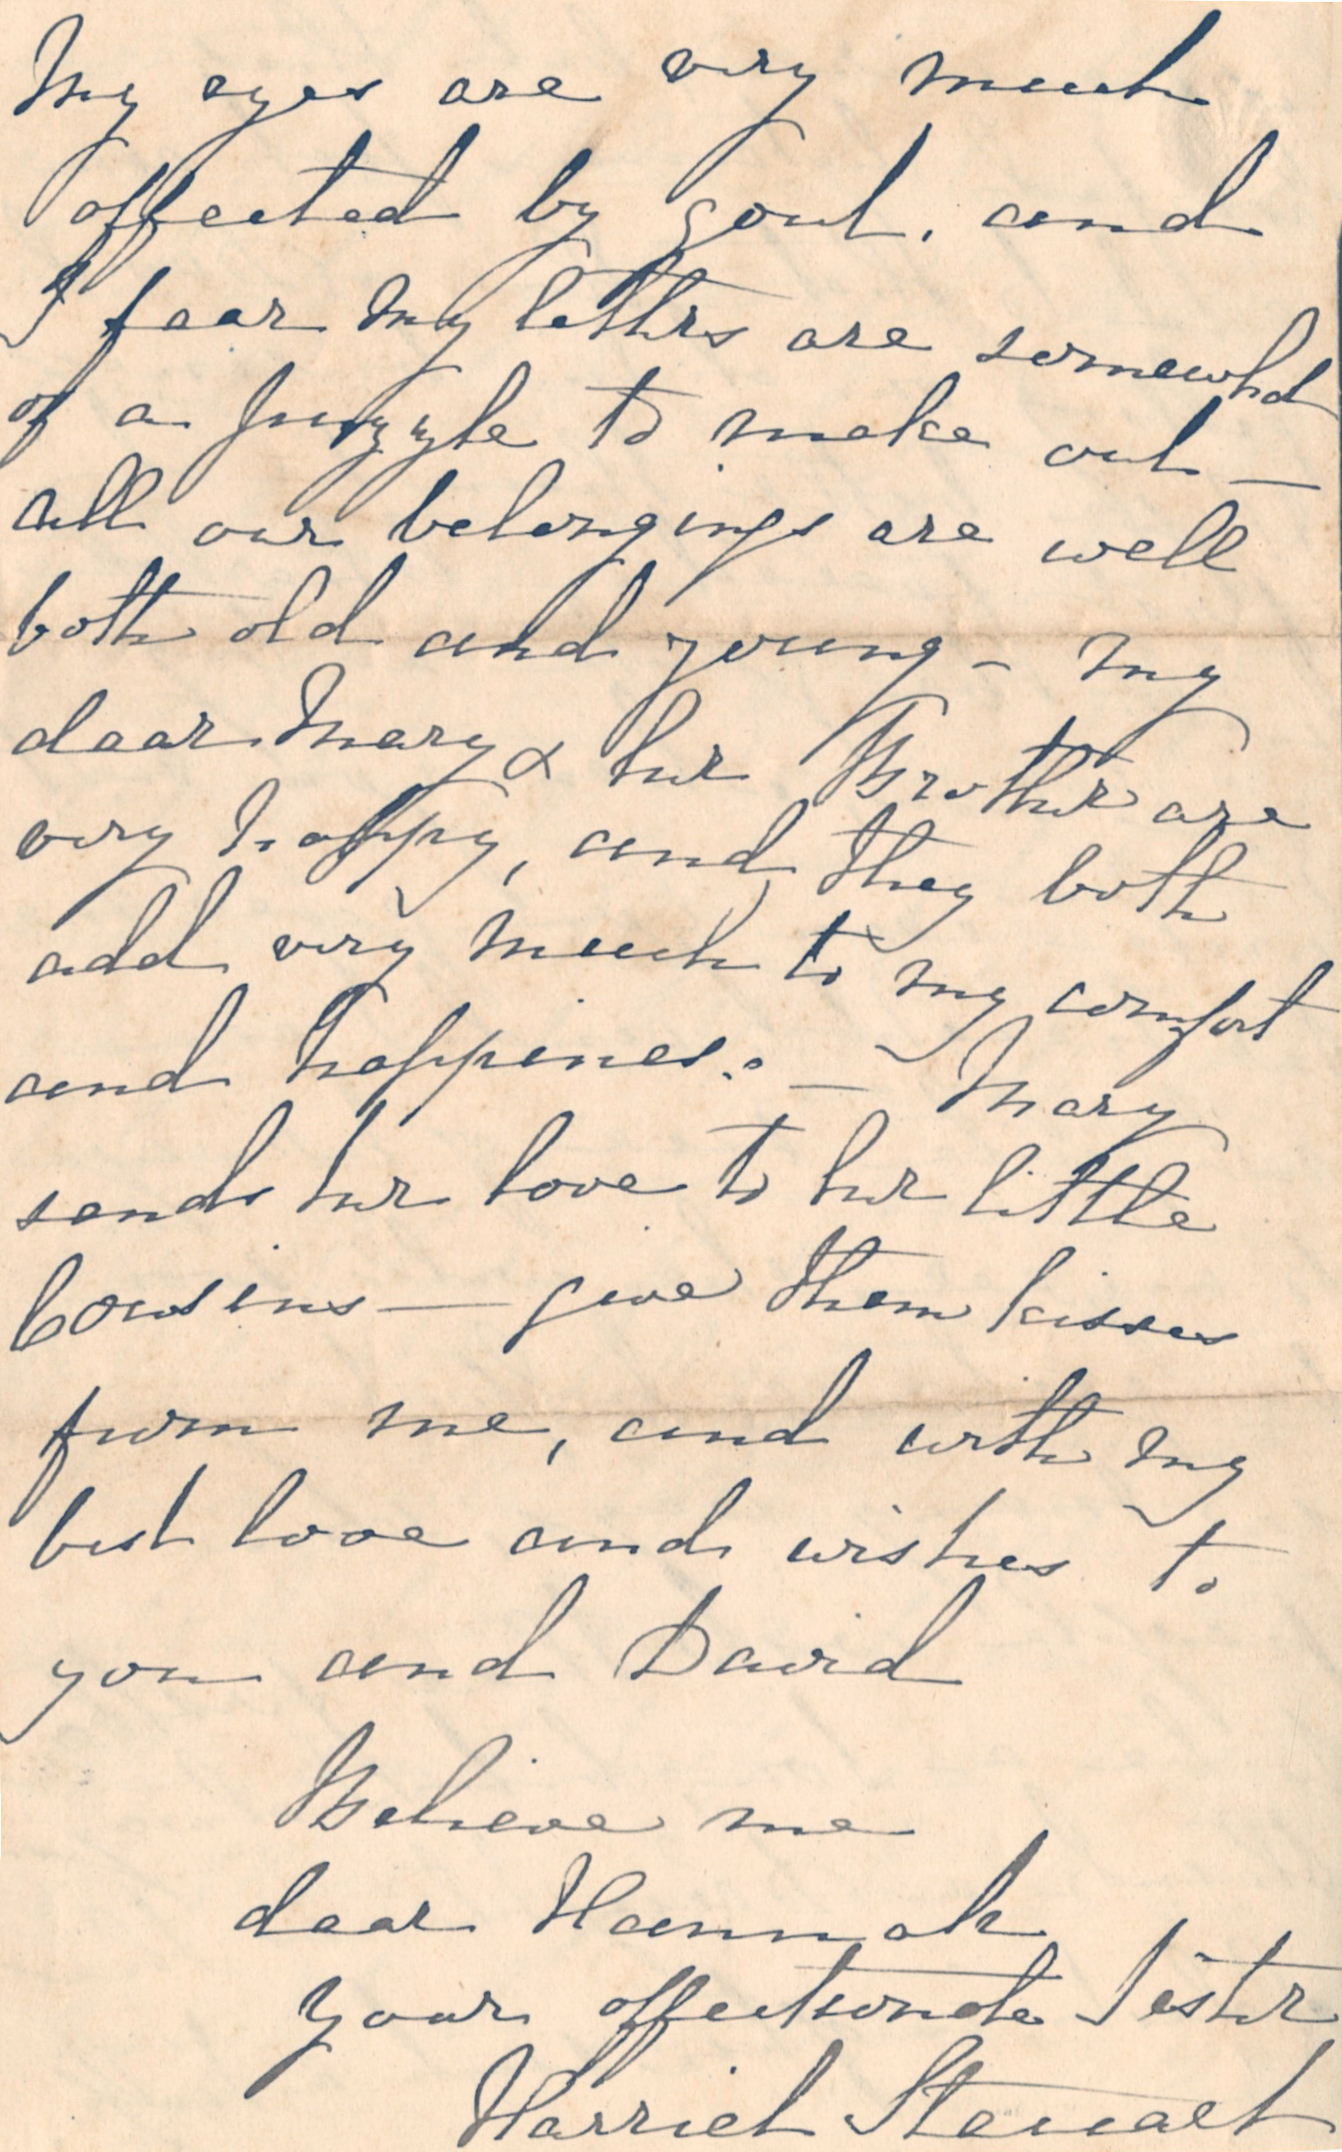 My eyes are very much
affected by gout. and
I fear my letters are somewhat
of a puzzle to make out —
all our belongings are well
both old and young – my
dear Mary & her Brother are
very happy, and they both
add very much to my comfort
and happiness. — Mary
sends her love to her little
Cousins — give them kisses
from me, and with my
best love and wishes to
you and David
Believe me
dear Hannah
your affectionate Sister
Harriet Steuart